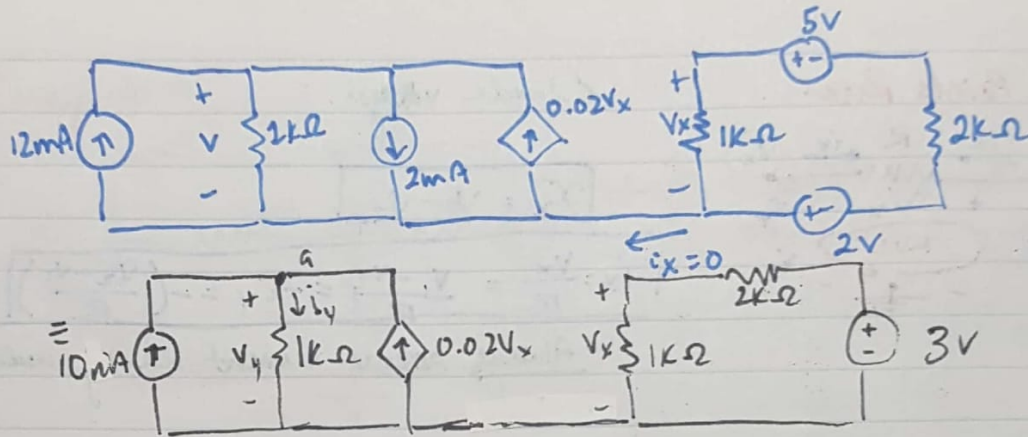 5V
+ -
12mA
+
V
-
2kΩ
2mA
0.02Vx
+
Vx
-
1KΩ
2KΩ
+-
2V
ix=0
≡
10mA
+
Vy
-
a
↓iy
1KΩ
0.02Vx
+
Vx
-
1KΩ
2KΩ
+
-
3V